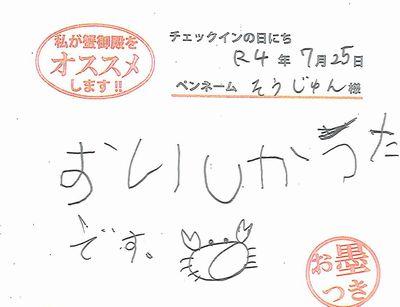 私が蟹御殿を
オススメ
します!!
チェックインの日にち
R4年7月25日
ペンネーム そうじゅん 様
おいしかった
です。
お墨
つき